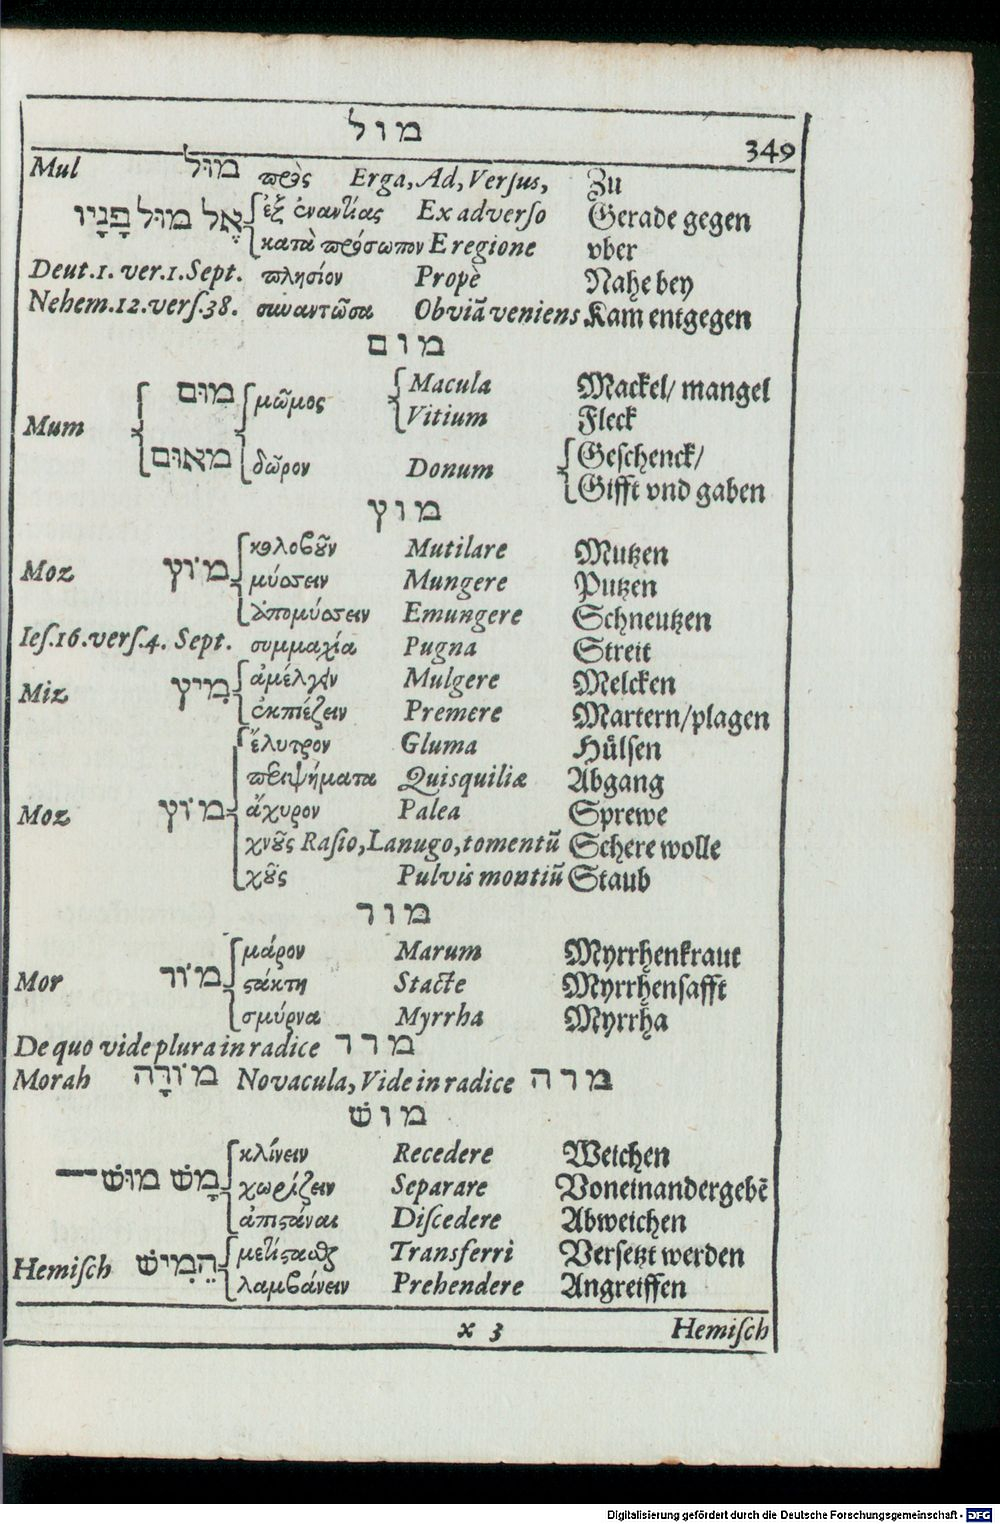 מול
349
Mul מוּל πρὸς Erga, Ad, Verſus, Zu
אֶל מוּל פָּנָיו ἐξ ἐναντίας Ex adverſo Gerade gegen
κατὰ πρόσωπον E regione vber
Deut.1. ver.1. Sept. πλησίον Propè Nahe bey
Nehem.12.verſ.38. συναντῶσα Obviã veniens Kam entgegen
מום
Mum מוּם μῶμος Macula Mackel/ mangel
Vitium Fleck
מאוּם δῶρον Donum Geſchenck/
Gifft vnd gaben
מוץ
Moz מוֹץ κολοβοῦν Mutilare Mutzen
μύσσειν Mungere Putzen
ἀπομύσσειν Emungere Schneutzen
Ieſ.16.verſ.4. Sept. συμμαχία Pugna Streit
Miz מִיץ ἀμέλγειν Mulgere Melcken
ἐκπιέζειν Premere Martern/plagen
Moz מוֹץ ἔλυτρον Gluma Hülſen
περιψήματα Quisquiliæ Abgang
ἄχυρον Palea Sprewe
χνοῦς Raſio, Lanugo, tomentũ Schere wolle
χοῦς Pulvis montiũ Staub
מור
Mor מוֹר μάρον Marum Myrrhenkraut
ϛάκτη Stacte Myrrhenſafft
σμύρνα Myrrha Myrrha
De quo vide plura in radice מרר
Morah מוֹרָה Novacula, Vide in radice מרה
מוש
מָשׁ מוּשׁ— κλίνειν Recedere Weichen
χωρίζειν Separare Voneinandergebẽ
ἀπιϛάναι Diſcedere Abweichen
Hemiſch הֵמִישׁ μεθίϛασθαι Transferri Verſetzt werden
λαμβάνειν Prehendere Angreiffen
x 3 Hemiſch
Digitalisierung gefördert durch die Deutsche Forschungsgemeinschaft - DFG